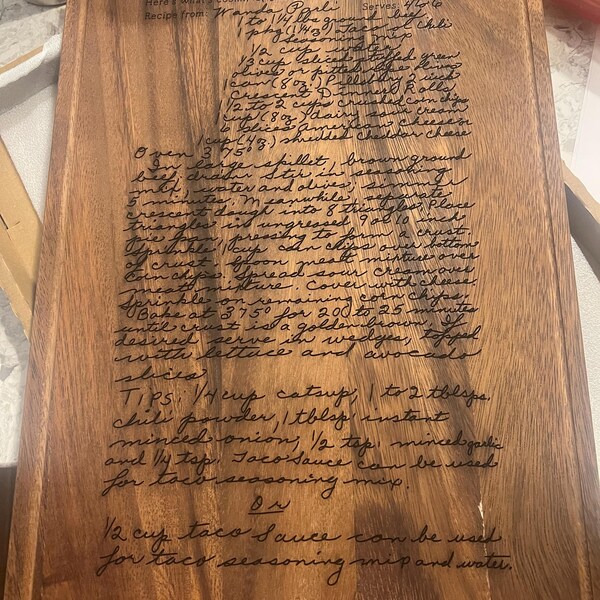 Here's what's cookin'
Recipe from: Serves: 4 to 6
1 to 1 1/4 lbs ground beef
1 pkg (1 1/4 oz) Taco or Chili
seasoning mix
1/2 cup water
1/3 cup sliced stuffed green
olives or pitted ripe olives
1 can (8 oz) Pillsbury 2 inch
Crescent Dinner Rolls
1/2 to 2 cups crushed corn chips
cup (8 oz) dairy sour cream
6 slices American cheese or
1 cup (4 oz.) shredded cheddar cheese
Oven 375°
In large skillet, brown ground
beef; drain. Stir in seasoning
mix, water and olives; simmer
5 minutes. Meanwhile, separate
crescent dough into 8 triangles. Place
triangles in ungreased 9 or 10 inch
pie pan, pressing to form a crust.
Sprinkle 1 cup corn chips over bottom
of crust. Spoon meat mixture over
corn chips. Spread sour cream over
meat mixture. Cover with cheese.
Sprinkle on remaining corn chips.
Bake at 375° for 20 to 25 minutes
until crust is a golden brown. If
desired serve in wedges, topped
with lettuce and avocado
slices.
TIPS: 1/4 cup catsup, 1 to 2 tblsps.
chili powder, 1 tblsp instant
minced onion, 1/2 tsp. minced garlic
and 1/4 tsp. Taco Sauce can be used
for taco seasoning mix.
Or
1/2 cup taco Sauce can be used
for taco seasoning mix and water.